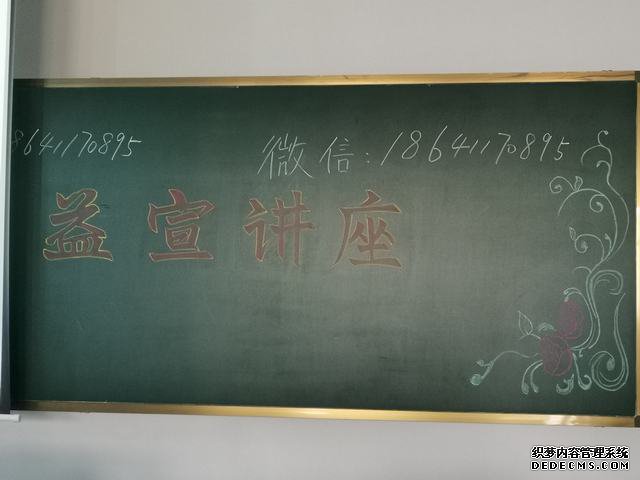 8641170895 微信:18641170895
益宣讲座
织梦内容管理系统
DEDECMS.COM